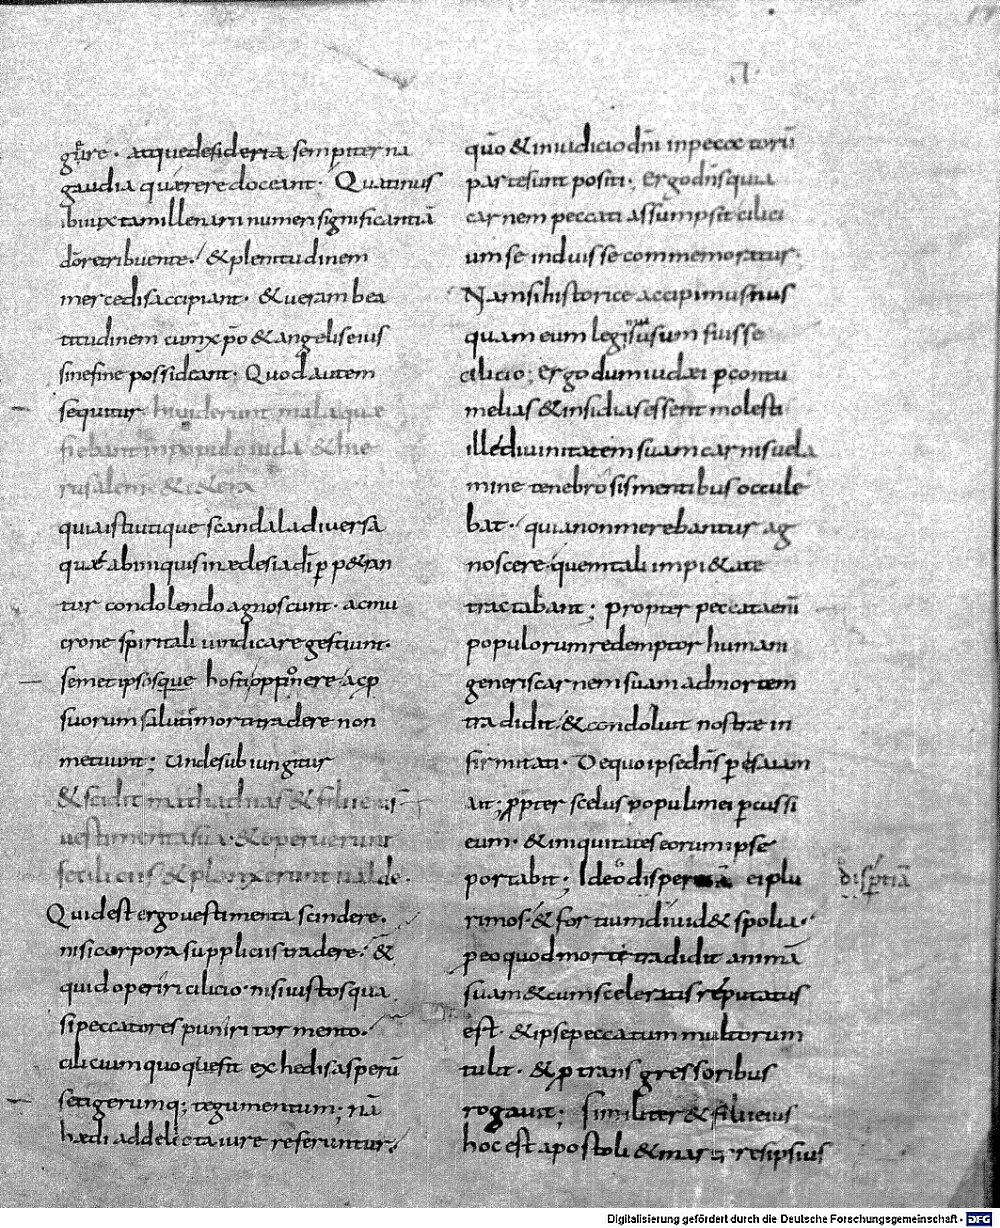 atque desideria sempiterna
gaudia quaerere doceant. Quatinus
ibi iuxta millenarii numeri significantiā
dōretribuente. & plenitudinem
mercedis accipiant. & ueram bea
titudinem cum xp̄o & angelis eius
sine fine possideant. Quod autem
sequitur huiuiderunt mala quae
fiebant in populo iuda & hie
rusalem. & c&era
quia isti utique scandala diuersa
quae ab iniquis in aeclesia dī p̄p&ran
tur condolendo agnoscunt. ac mu
crone spiritali uindicare gestiunt.
semet ipsosque hosti opponere ac p̄
suorum salute morti tradere non
metuunt; Unde subiungitur
& scidit mathathias & filii eius
uestimenta sua. & operuerunt
se ciliciis & planxerunt ualde.
Quid est ergo uestimenta scindere.
nisi corpora suppliciis tradere. &
quid operiri cilicio. nisi iustos qua
si peccatores puniri tormento.
cilicium quoque fit ex hedis asperū
setigerumq; tegumentum; nā
hædi ad delicta iure referuntur.
quō & in iudicio dn̄i in peccatorū
parte sunt positi; ergo dn̄s quia
carnem peccati assumpsit cilici
um se induisse commemoratur.
Nam si historice accipimus nus
quam eum legimus usum fuisse
cilicio; ergo dum iudæi p̄ contu
melias & insidias essent molesti
ille diuinitatem suam carnis uela
mine tenebrosis mentibus occule
bat. quia non merebantur ag
noscere quem tali impi&ate
tractabant; propter peccata enī
populorum redemptor humani
generis carnem suam ad mortem
tradidit. & condoluit nostræ in
firmitati. De quo ipse dn̄s p̄ esaiam
ait; p̄pter scelus populi mei p̄cussi
eum. & iniquitates eorum ipse
portabit; Ideo eiplu
disp̄tiā
rimos. & fortium diuid& spolia.
p̄ eo quod morte tradidit animā
suam & cum sceleratis reputatus
est. & ipse peccatum multorum
tulit. & p̄ transgressoribus
rogauit; similiter & filii eius
hoc est apostoli & martires ipsius